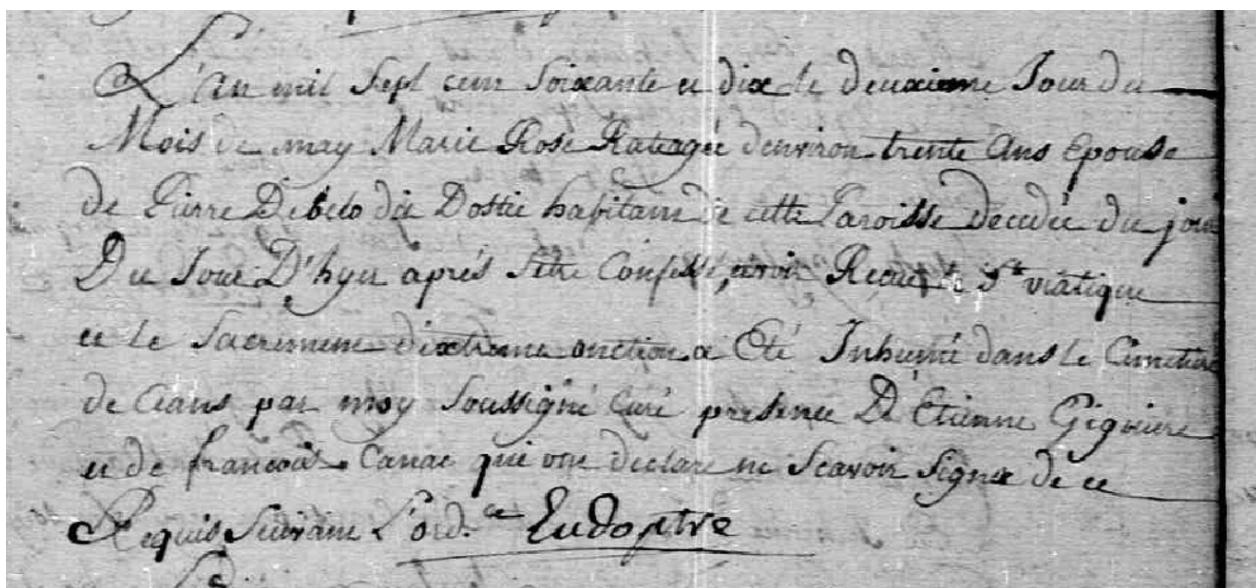 L'an mil Sept cent Soixante et dix le deuxieme Jour du
Mois de may Marie Rose Rateagée d'environ trente Ans Epouse
de Pierre De bled dit Dostie habitant de cette Paroisse decedée du jour
Du Jour D'hyer aprés S'etre Confessé, avoir Recue le St viatique
et le Sacrement d'extreme onction a Eté Inhumé dans le Cimetiere
de Ceans par moy Soussigné Curé presence D'Etienne Giguiere
et de francois Canac qui ont declare ne Scavoir Signer de ce
Requis Suivant L'ord.ce Eudo